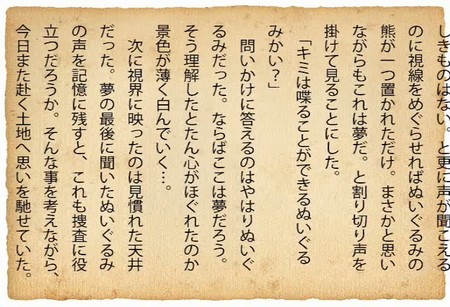 しきものはない。と更に声が聞こえる
のに視線をめぐらせればぬいぐるみの
熊が一つ置かれただけ。まさかと思い
ながらもこれは夢だ。と割り切り声を
掛けて見ることにした。
「キミは喋ることができるぬいぐる
みかい？」
問いかけに答えるのはやはりぬいぐ
るみだった。ならばここは夢だろう。
そう理解したとたん心がほぐれたのか
景色が薄く白んでいく…。
次に視界に映ったのは見慣れた天井
だった。夢の最後に聞いたぬいぐるみ
の声を記憶に残すと、これも捜査に役
立つだろうか。そんな事を考えながら、
今日また赴く土地へ思いを馳せていた。